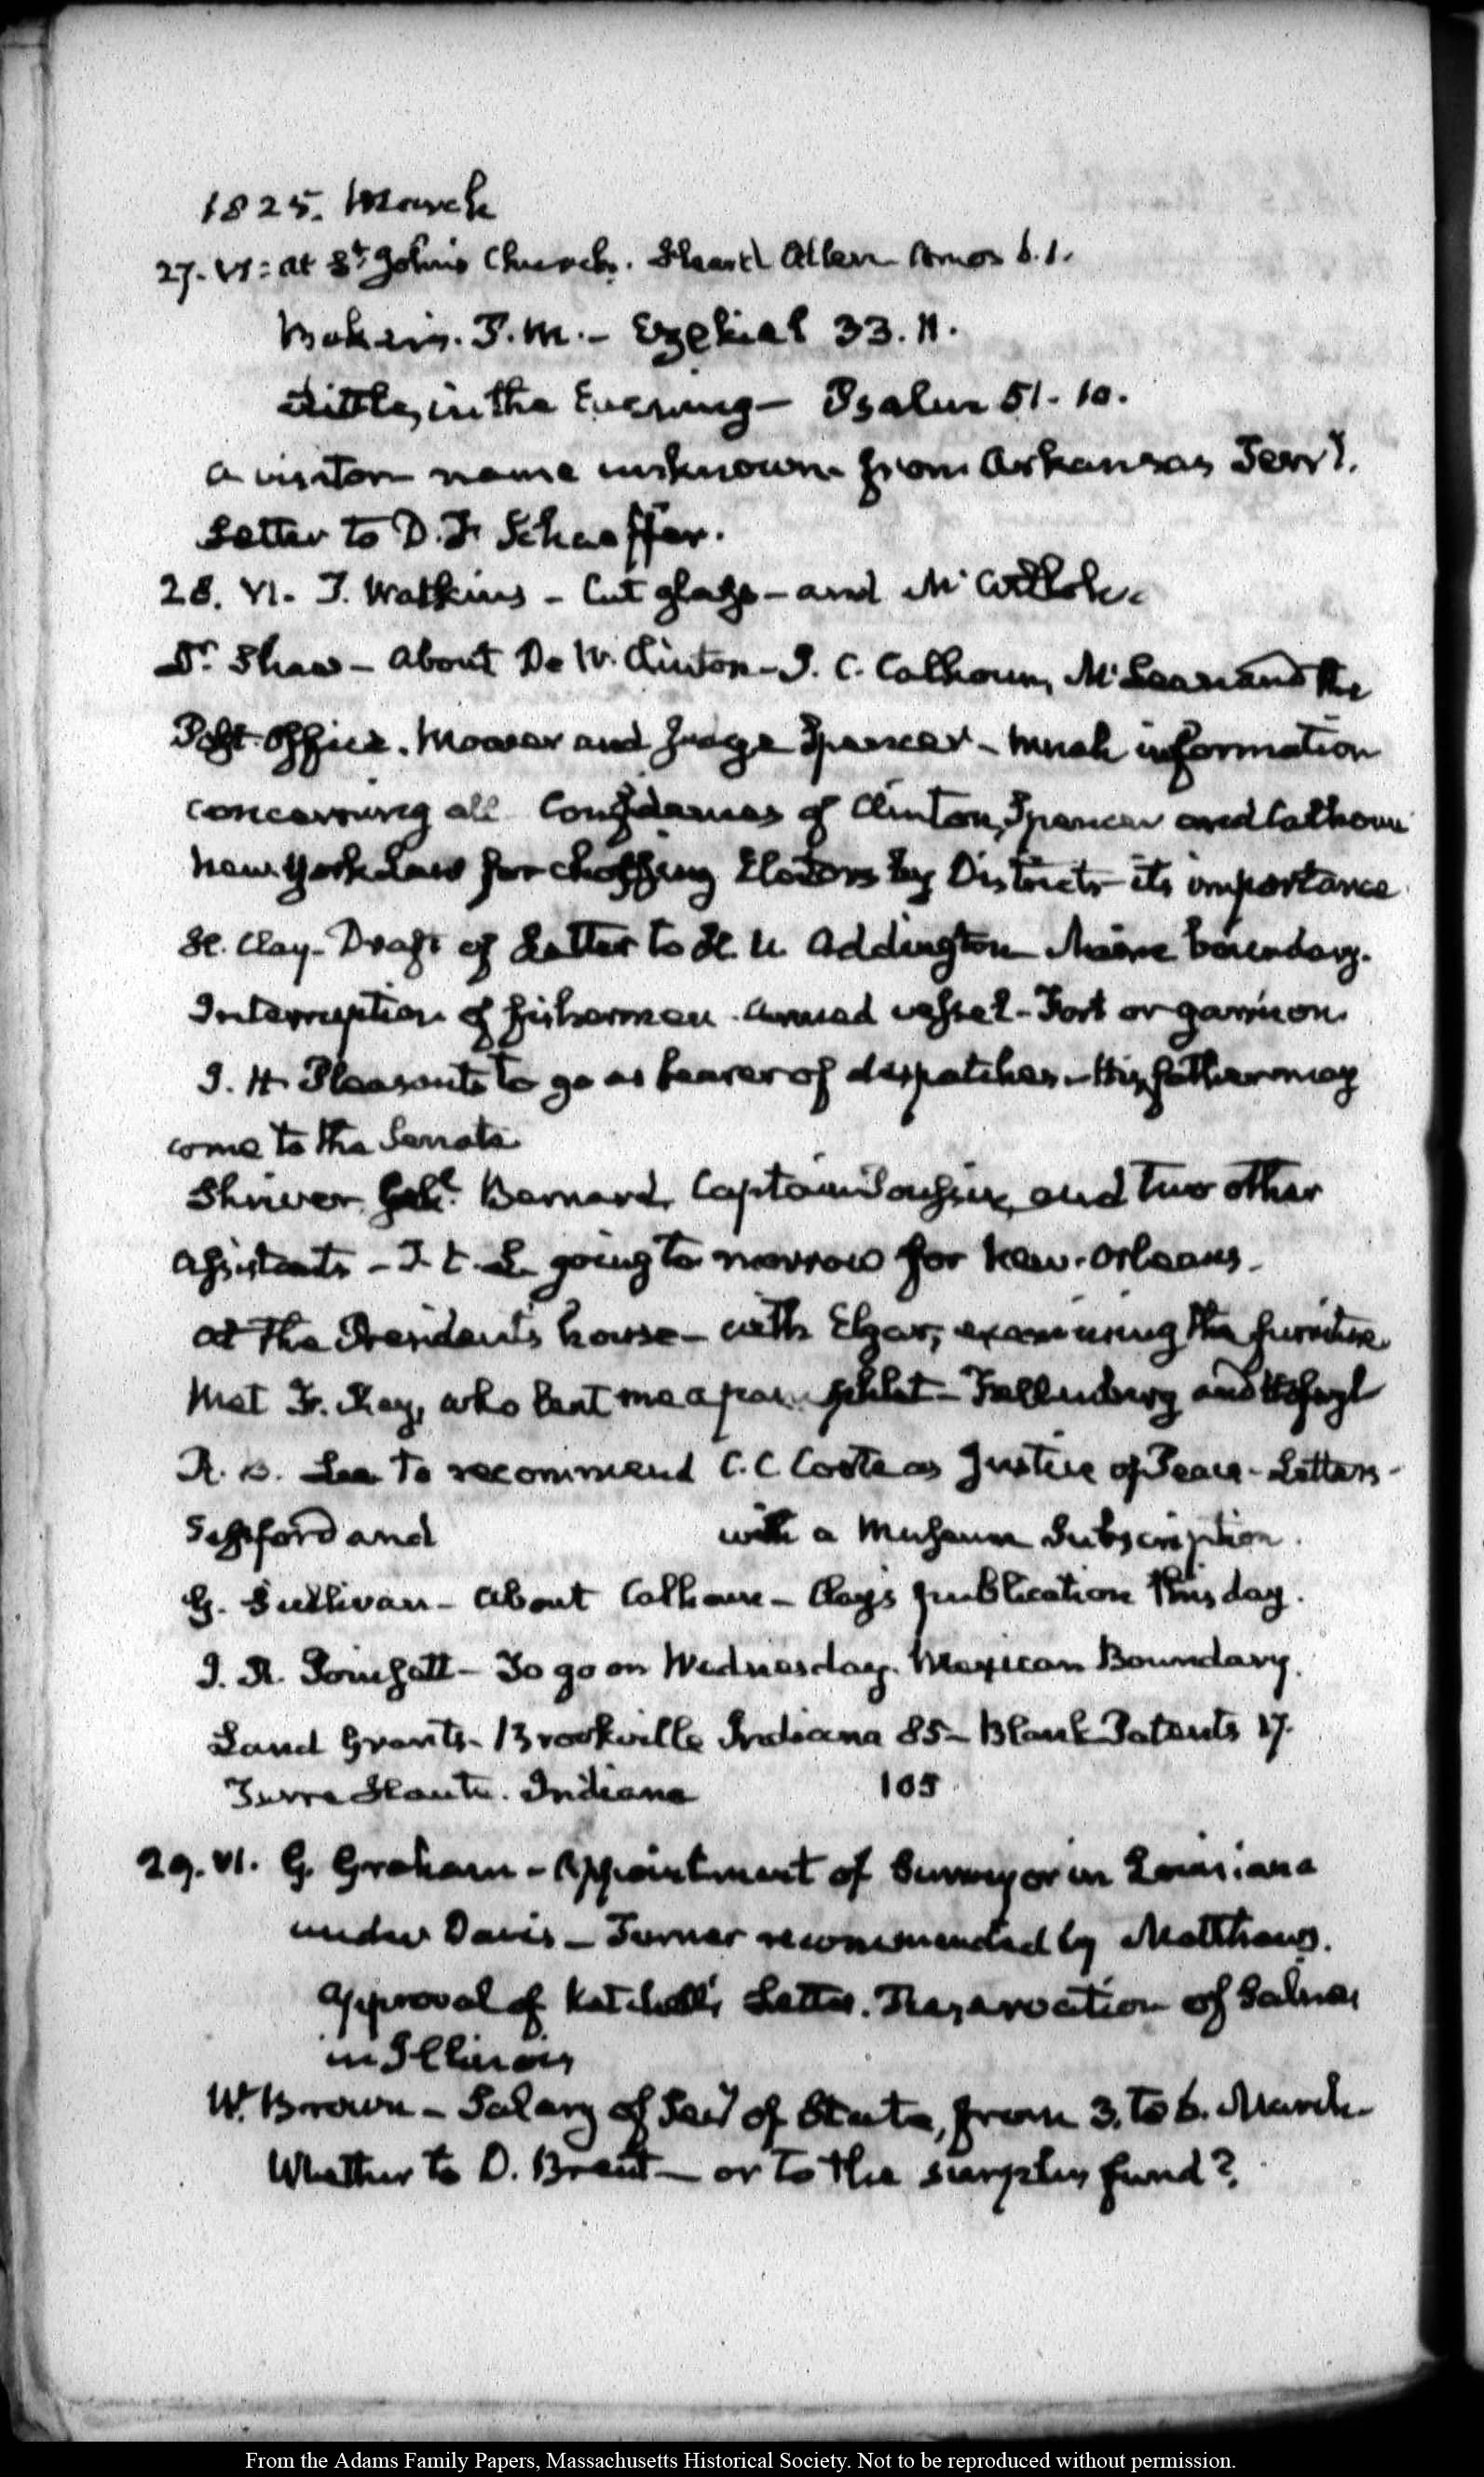 1825. March
27. VI: at St. John's Church. Heard Allen Amos 6.1.
P.M.- Ezekial 33.11.
Little, in the Evening- Psalm 51-10.
a visitor name unknown from Arkansas Terry.
Letter to D. F. Schaeffer.
28. VI. T. Watkins - Cut glass - and
Dr. Shaw - About De W. Clinton - J. C. Calhoun, McLean and the
Post Office. and Judge Spencer - Much information
concerning all Clinton, Spencer and Calhoun
New-York Law for choosing Electors by Districts its importance
H. Clay- Draft of Letter to H. U. Addington Maine boundary.
Interruption of fishermen armed vessel - Fort or garrison.
J. H. Pleasants to go as bearer of despatches - His father may
come to the Senate
Shriver Genl. Bernard, Captain Poussin, and two other
assistants - J. L. S. going to morrow for New-Orleans.
At the President's house - with Elgar, examining the furniture
Met who lent me a pamphlet - Fellenberg and Hofwyl
R. B. Lee to recommend C. C. as Justice of Peace - Letters-
Sessford and with a Museum Subscription.
G. Sullivan - about Calhoun - Clay's publication this day.
J. R. Poinsett - To go on Wednesday. Mexican Boundary.
Land Grants - Brookville Indiana 85 - Blank Patents 17.
Terre Haute. Indiana 105
29. VI. G. Graham - Appointment of Surveyor in Louisiana
under Davis - Turner recommended by Matthews.
approval of Letter. Reservation of Salines
in Illinois
W. Brown - Salary of Secy of State, from 3. to 6. March.
Whether to D. Brent - or to the surplus fund?